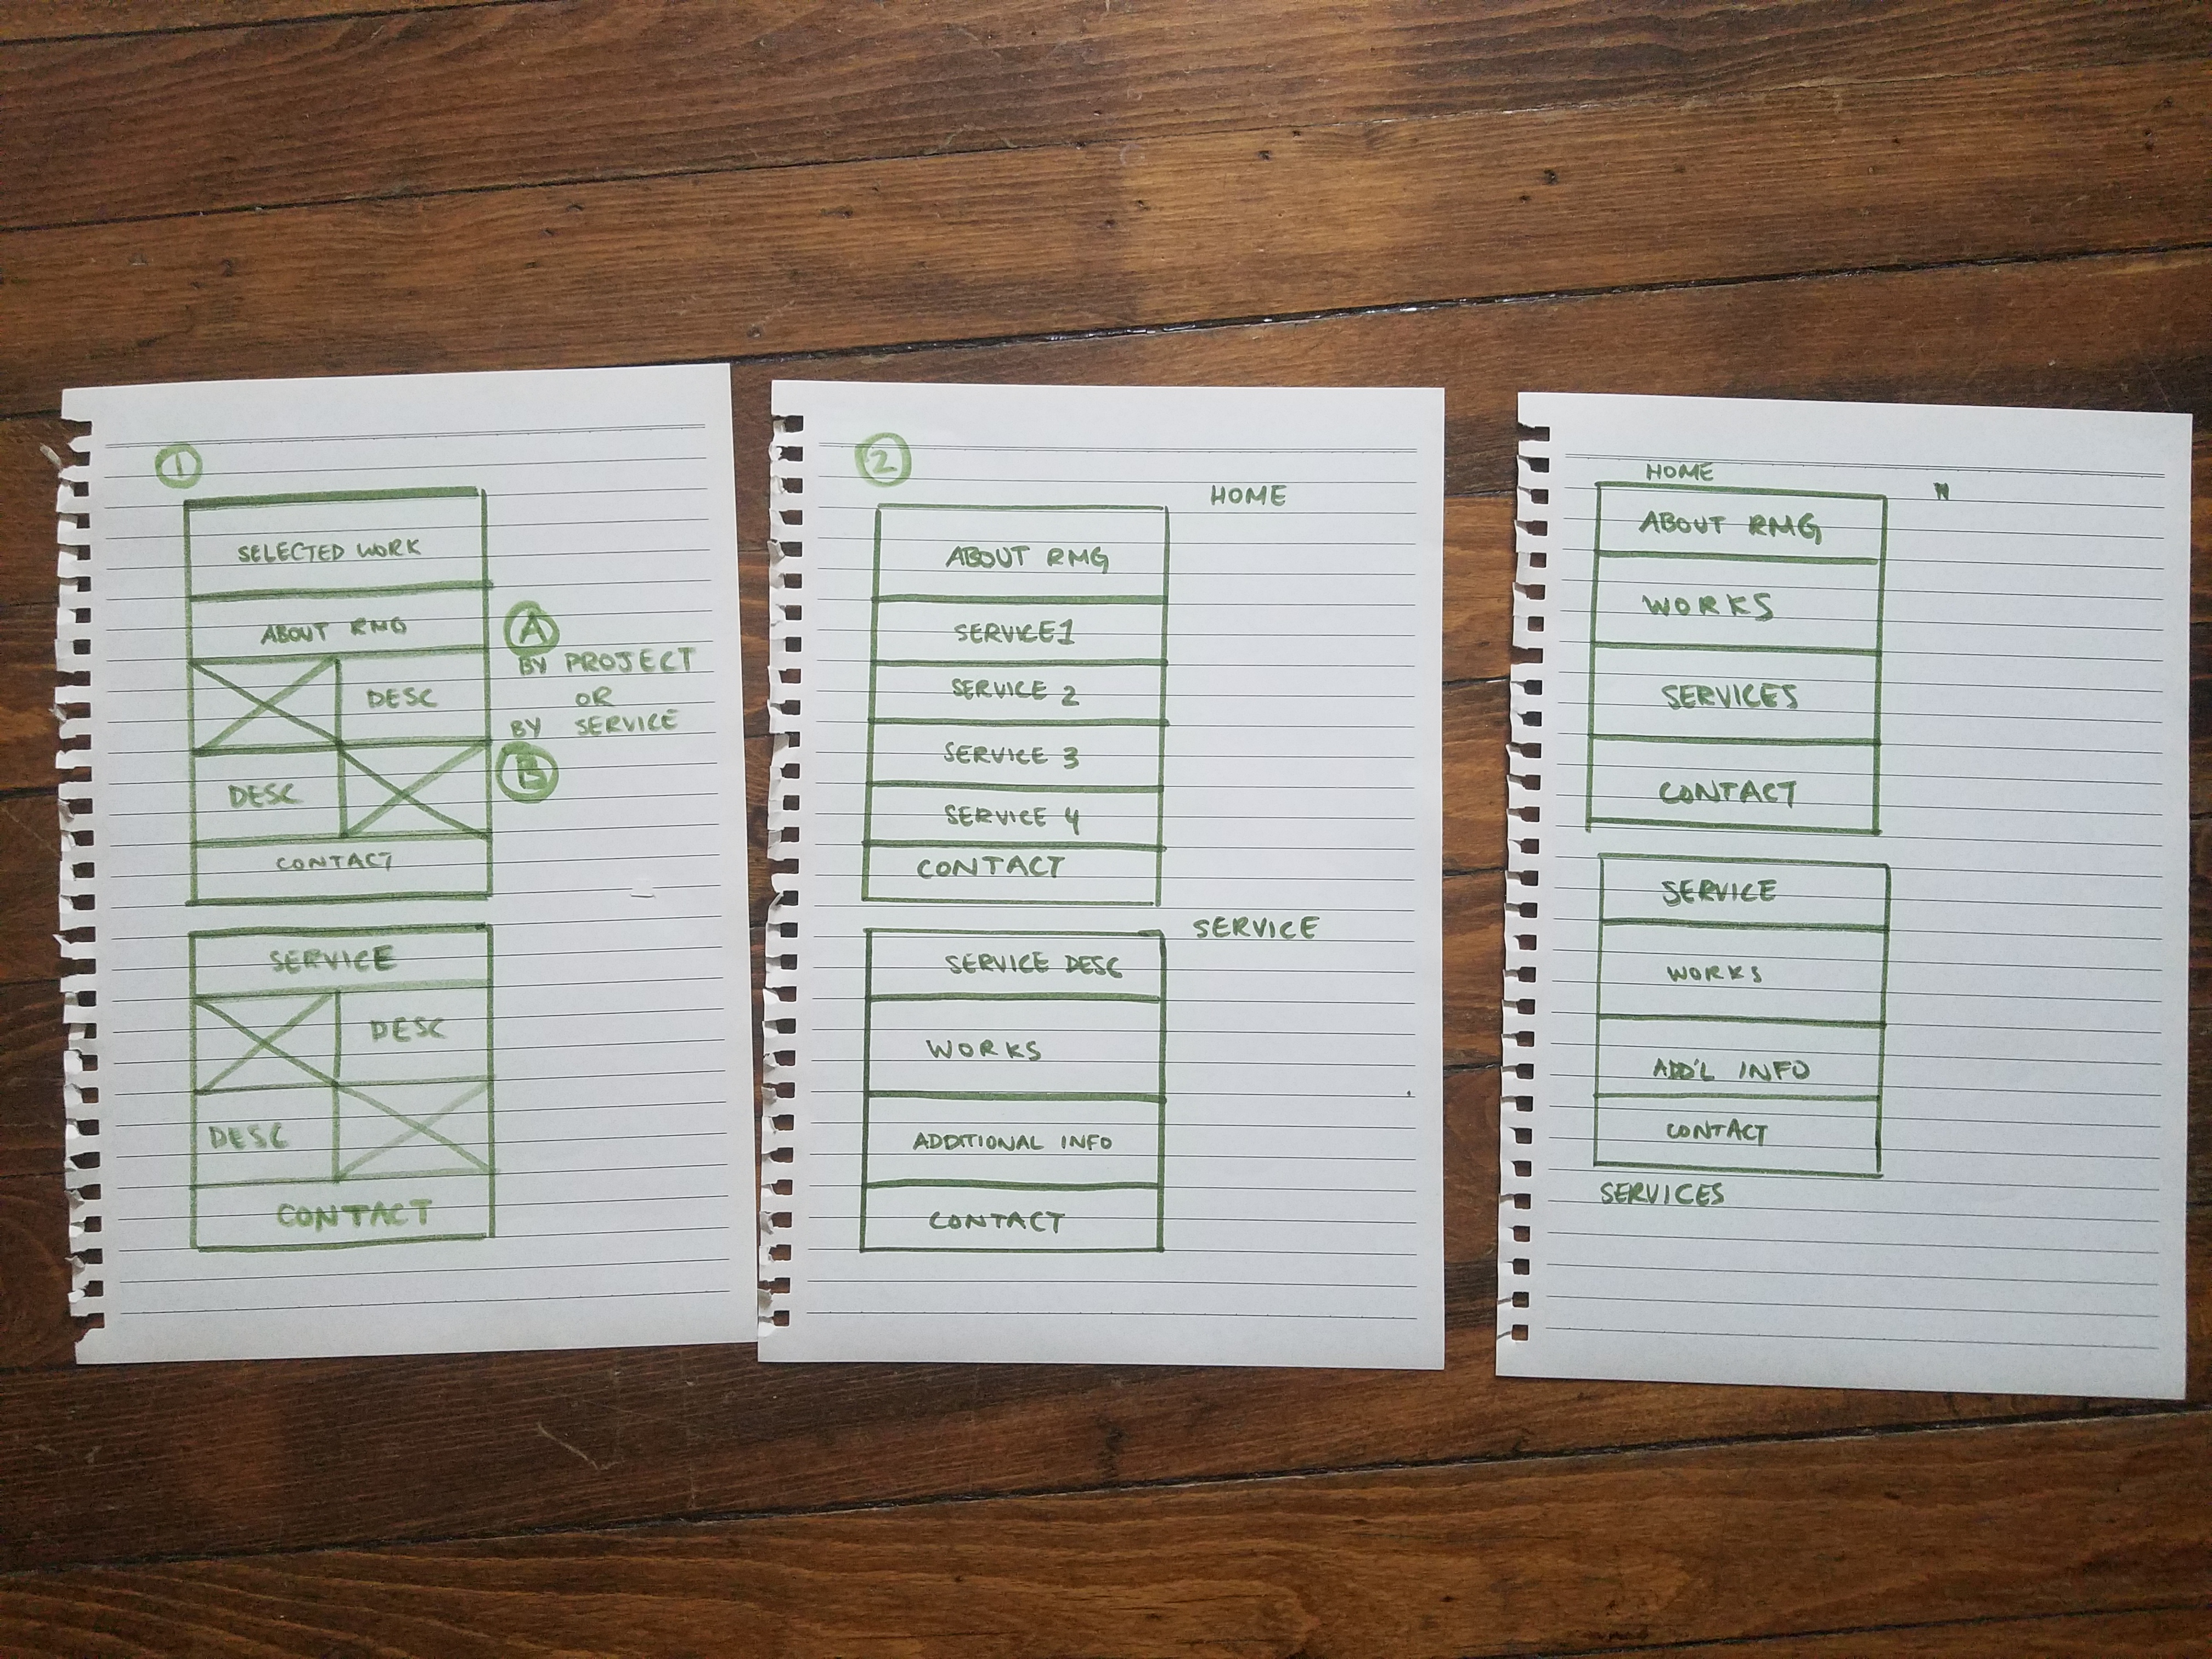 1
SELECTED WORK
ABOUT RMG
A
BY PROJECT
DESC
OR
BY SERVICE
B
DESC
CONTACT
SERVICE
DESC
DESC
CONTACT
2
HOME
ABOUT RMG
SERVICE1
SERVICE 2
SERVICE 3
SERVICE 4
CONTACT
SERVICE
SERVICE DESC
WORKS
ADDITIONAL INFO
CONTACT
HOME
N
ABOUT RMG
WORKS
SERVICES
CONTACT
SERVICE
WORKS
ADD'L INFO
CONTACT
SERVICES